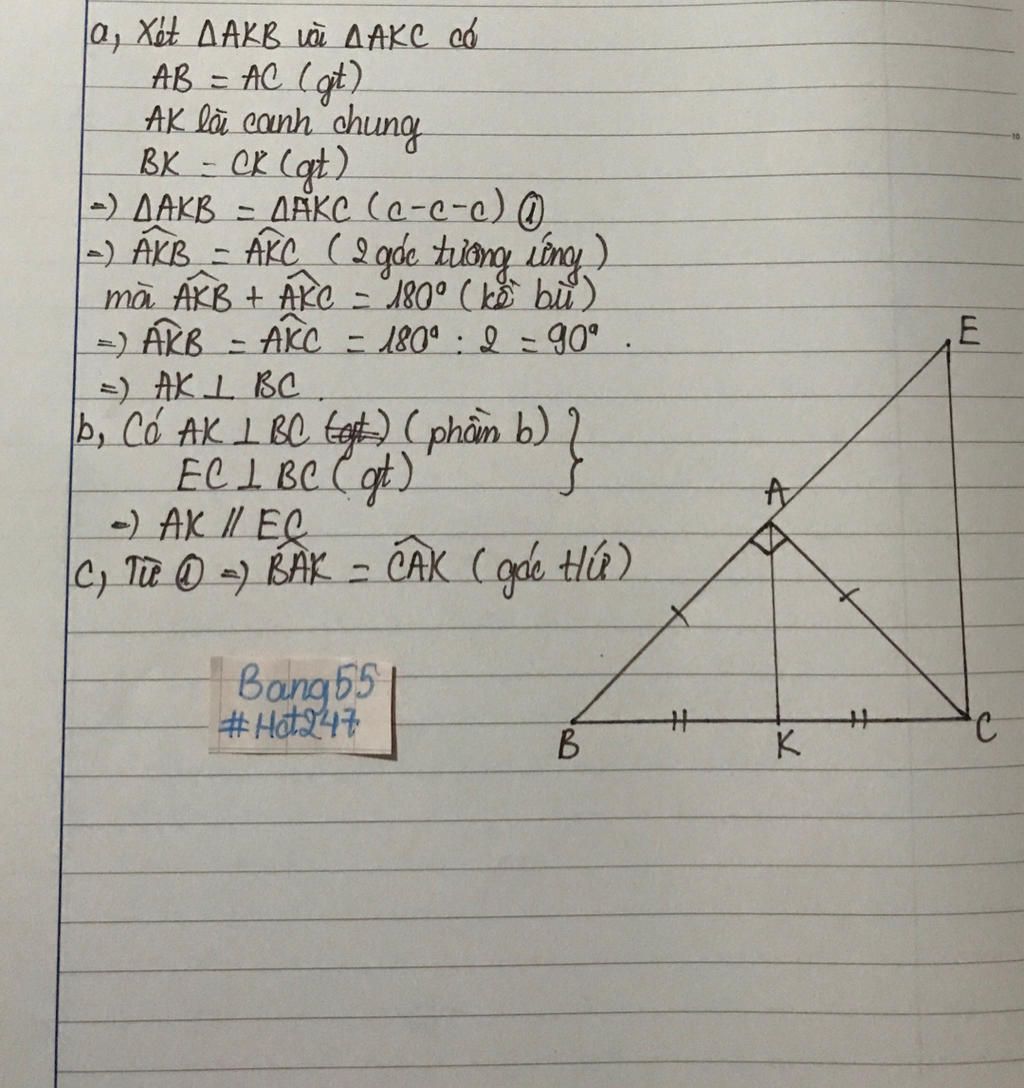 a, Xét ΔAKB và ΔAKC có
AB = AC (gt)
AK là canh chung
BK = CK (gt)
=) ΔAKB = ΔAKC (c-c-c) ①
=) \widehat{AKB} = \widehat{AKC} ( 2 góc tương ứng )
mà \widehat{AKB} + \widehat{AKC} = 180° (kề bù)
=) \widehat{AKB} = \widehat{AKC} = 180° : 2 = 90° .
=) AK ⊥ BC .
b, Có AK ⊥ BC (gt) ( phần b) }
EC ⊥ BC ( gt)
=) AK // EC
c, Từ ① =) \widehat{BAK} = \widehat{CAK} ( góc tứ)
E
A
B
K
C
Bang55
#Hot247
10